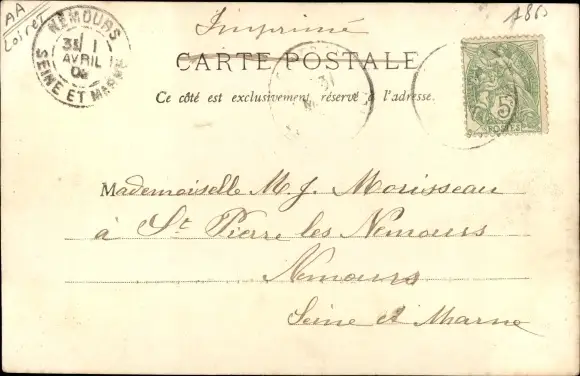 AA
Loiret
NEMOURS
31
AVRIL
SEINE ET MARNE
Imprimé
1860
CARTE POSTALE
Ce côté est exclusivement réservé à l'adresse.
5
POSTES
Mademoiselle M. J. Morisseau
à St Pierre les Nemours
Nemours
Seine et Marne